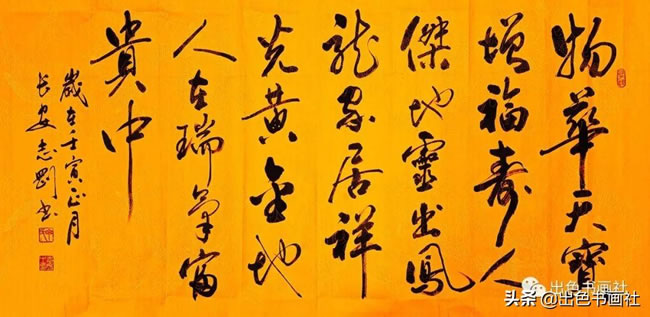 物華天寶
增福壽人
傑地靈出鳳
龍家居祥
光黃金地
人在瑞氣富
貴中
歲在壬寅正月
長安志剛书
出色书画社
头条 @出色书画社